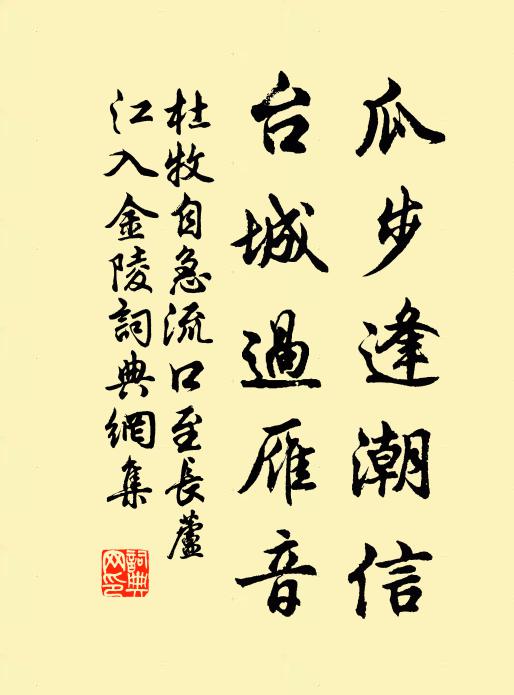 瓜步逢潮信
台城過雁音
杜牧自急流口至長蘆
江入金陵詞典網集
詞典網印